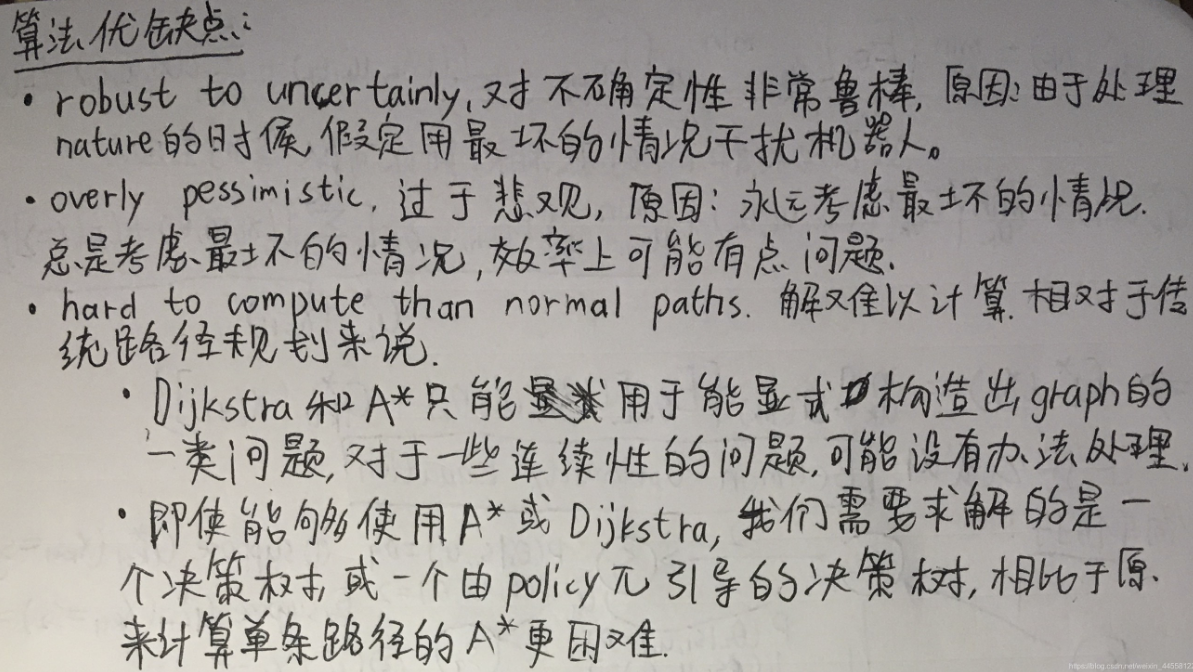 算法优缺点:
• robust to uncertainly, 对不确定性非常鲁棒, 原因: 由于处理
nature的时候, 假定用最坏的情况干扰机器人。
• overly pessimistic, 过于悲观, 原因: 永远考虑最坏的情况.
总是考虑最坏的情况, 效率上可能有点问题.
• hard to compute than normal paths. 解难以计算. 相对于传
统路径规划来说.
• Dijkstra和A*只能用于能显式构造出graph的
一类问题, 对于一些连续性的问题, 可能没有办法处理.
• 即使能够使用A*或Dijkstra, 我们需要求解的是一
个决策树, 或一个由policy π引导的决策树, 相比于原
来计算单条路径的A*更困难.